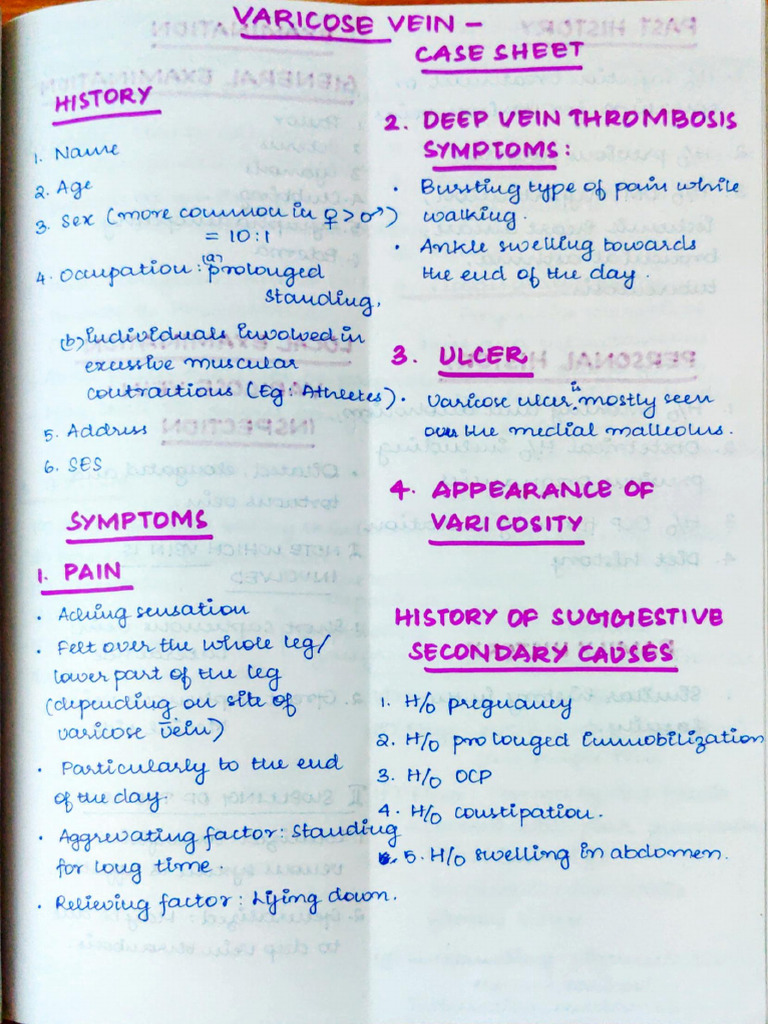 VARICOSE VEIN -
CASE SHEET
HISTORY
1. Name
2. Age
3. Sex (more common in ♀ > ♂)
= 10:1
4. Occupation: (a) prolonged
standing,
(b) individuals involved in
excessive muscular
contractions (Eg: Athletes)
5. Address
6. SES
SYMPTOMS
1. PAIN
• Aching sensation
• Felt over the whole leg/
lower part of the leg
(depending on site of
varicose vein)
• Particularly to the end
of the day.
• Aggrevating factor: Standing
for long time.
• Relieving factor: Lying down.
2. DEEP VEIN THROMBOSIS
SYMPTOMS:
• Bursting type of pain while
walking.
• Ankle swelling towards
the end of the day.
3. ULCER
• Varicose ulcer is mostly seen
over the medial malleolus.
4. APPEARANCE OF
VARICOSITY
HISTORY OF SUGGESTIVE
SECONDARY CAUSES
1. H/o pregnancy
2. H/o prolonged immobilization
3. H/o OCP
4. H/o constipation.
5. H/o swelling in abdomen.